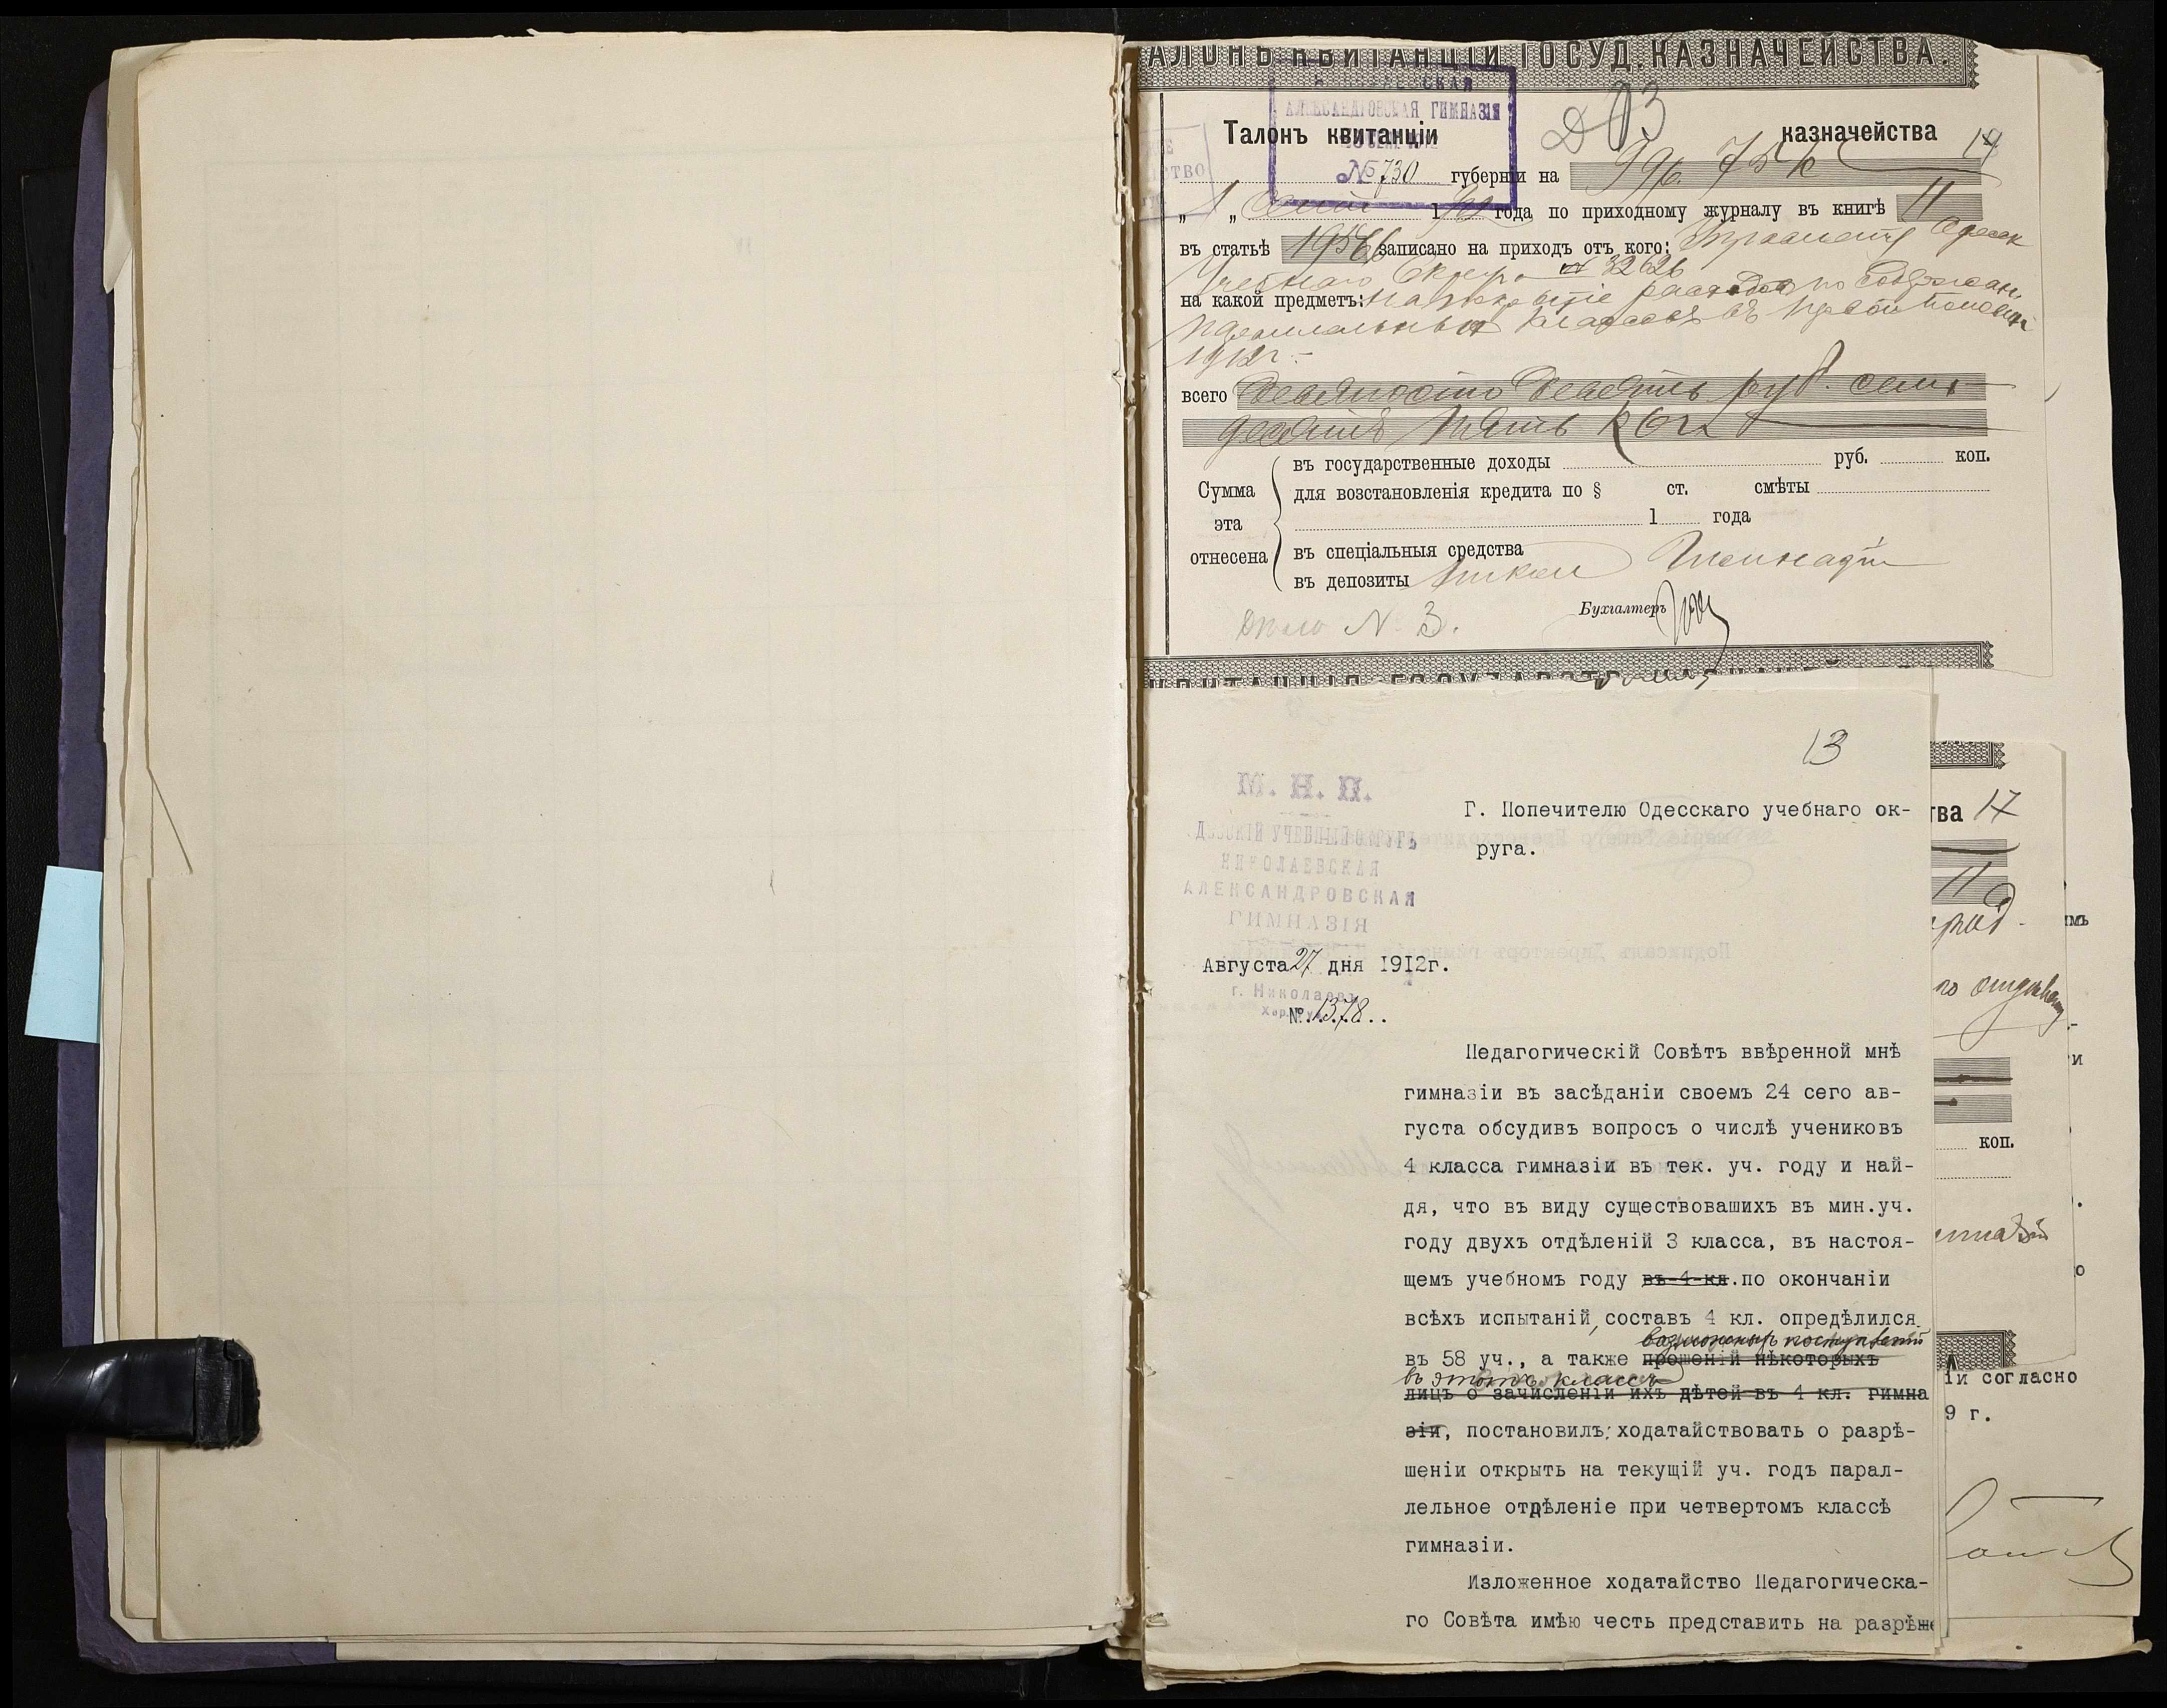 АЛОНЪ КВИТАНЦІИ ГОСУД. КАЗНАЧЕЙСТВА.
АЛЕКСАНДРОВСКАЯ ГИМНАЗІЯ
№ 730
Талонъ квитанціи казначейства 14
губерніи на 99 р. 75 к
„ 1 „ 1912 года по приходному журналу въ книгѣ 11
въ статьѣ записано на приходъ отъ кого: Одесск
Учебнаго Округа № 32626
на какой предметъ: на покрытіе расходовъ по содержан.
параллельныхъ классовъ въ первой половинѣ
1912 г.
всего Девяносто девять руб. семь
десятъ пять коп
Сумма эта отнесена
въ государственные доходы руб. коп.
для возстановленія кредита по § ст. смѣты
1 года
въ спеціальныя средства
въ депозиты
Бухгалтеръ
Дѣло № 3.
13
М. Н. П.
ДЕССКІЙ УЧЕБНЫЙ ОКРУГЪ
НИКОЛАЕВСКАЯ
АЛЕКСАНДРОВСКАЯ
ГИМНАЗІЯ
Августа 27 дня 1912г.
г. Николаевъ
№.1378..
Г. Попечителю Одесскаго учебнаго ок-
руга.
Педагогическій Совѣтъ ввѣренной мнѣ
гимназіи въ засѣданіи своемъ 24 сего ав-
густа обсудивъ вопросъ о числѣ учениковъ
4 класса гимназіи въ тек. уч. году и най-
дя, что въ виду существовашихъ въ мин.уч.
году двухъ отдѣленій 3 класса, въ настоя-
щемъ учебномъ году въ 4 кл.по окончаніи
всѣхъ испытаній, составъ 4 кл. опредѣлился
возможныхъ поступленій
въ 58 уч., а также прошеній нѣкоторыхъ
въ этотъ классъ
лицъ о зачисленіи ихъ дѣтей въ 4 кл. гимна
зіи, постановилъ: ходатайствовать о разрѣ-
шеніи открыть на текущій уч. годъ парал-
лельное отдѣленіе при четвертомъ классѣ
гимназіи.
Изложенное ходатайство Педагогическа-
го Совѣта имѣю честь представить на разрѣше
тва 17
11
коп.
іи согласно
9 г.